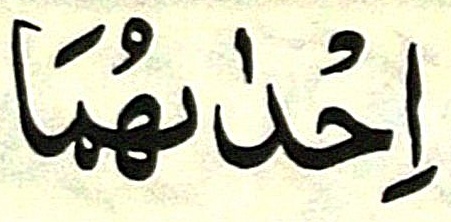 اِحْدٰىهُمَا